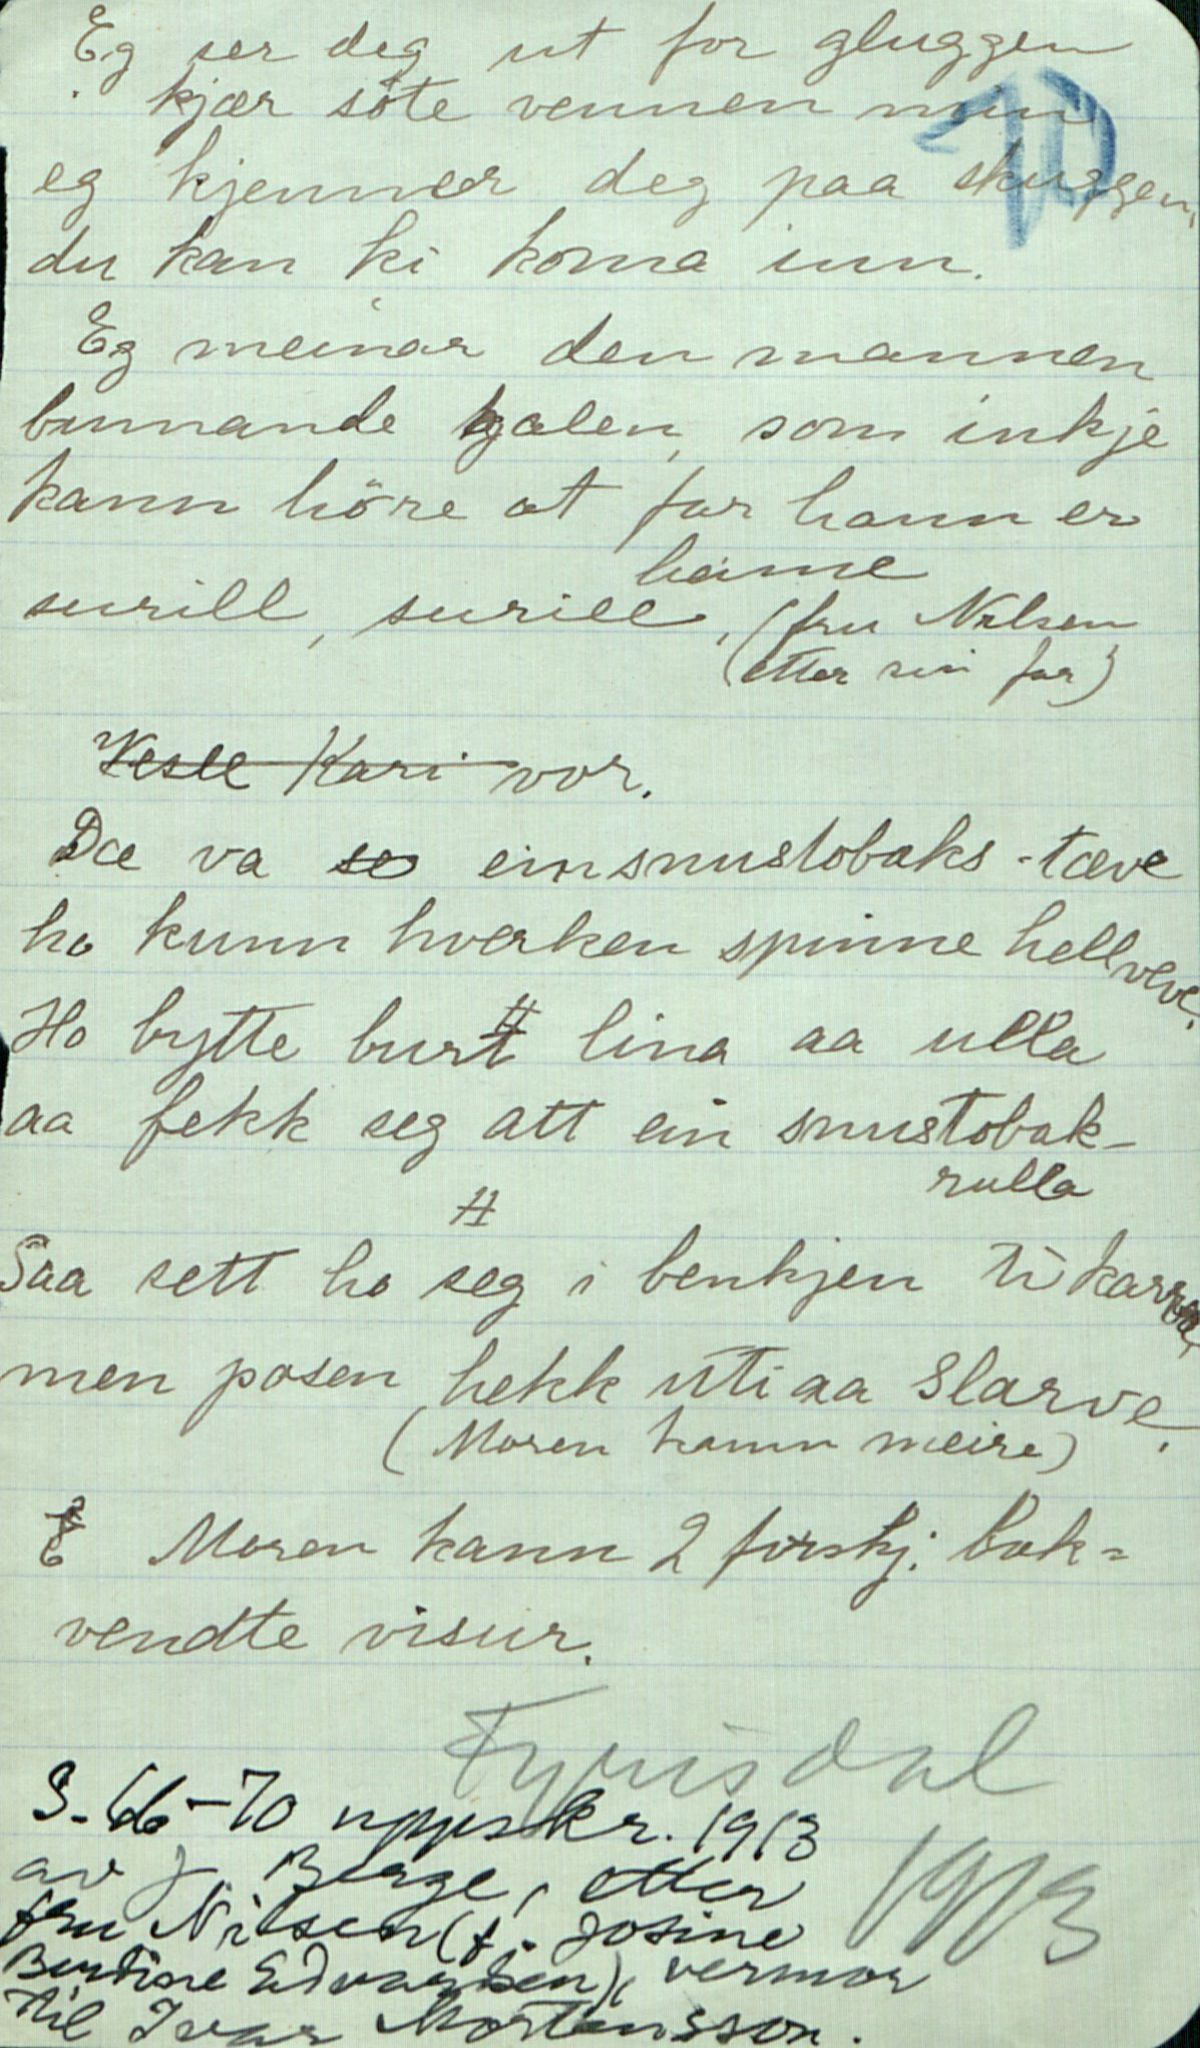 70
Eg ser deg ut for gluggen
kjær söte vennen min
eg kjenner deg paa skuggen,
du kan ki koma inn.
Eg meinar den mannen
bunnande galen, som inkje
kann höre at far hann er
heime
surill, surill, (fru Nilsen
(etter sin far)
Vesle Kari vor.
Dæ va so ein snustobaks-tæve
ho kunn hverken spinne hell veve,
Ho bytte burt lina aa ulla
aa fekk seg att ein snustobak-
rulla
Saa sett ho seg i benkjen ti karva,
men posen hekk uti aa Slarve.
(Moren kann meire)
Moren kann 2 forskj. bak=
vendte visur.
Fyrisdal
1913
S. 66-70 uppskr. 1913
av J. Berge, etter
fru Nilsen (f. Josine
Bentine Edvardsen), vermor
til Ivar Mortensson.